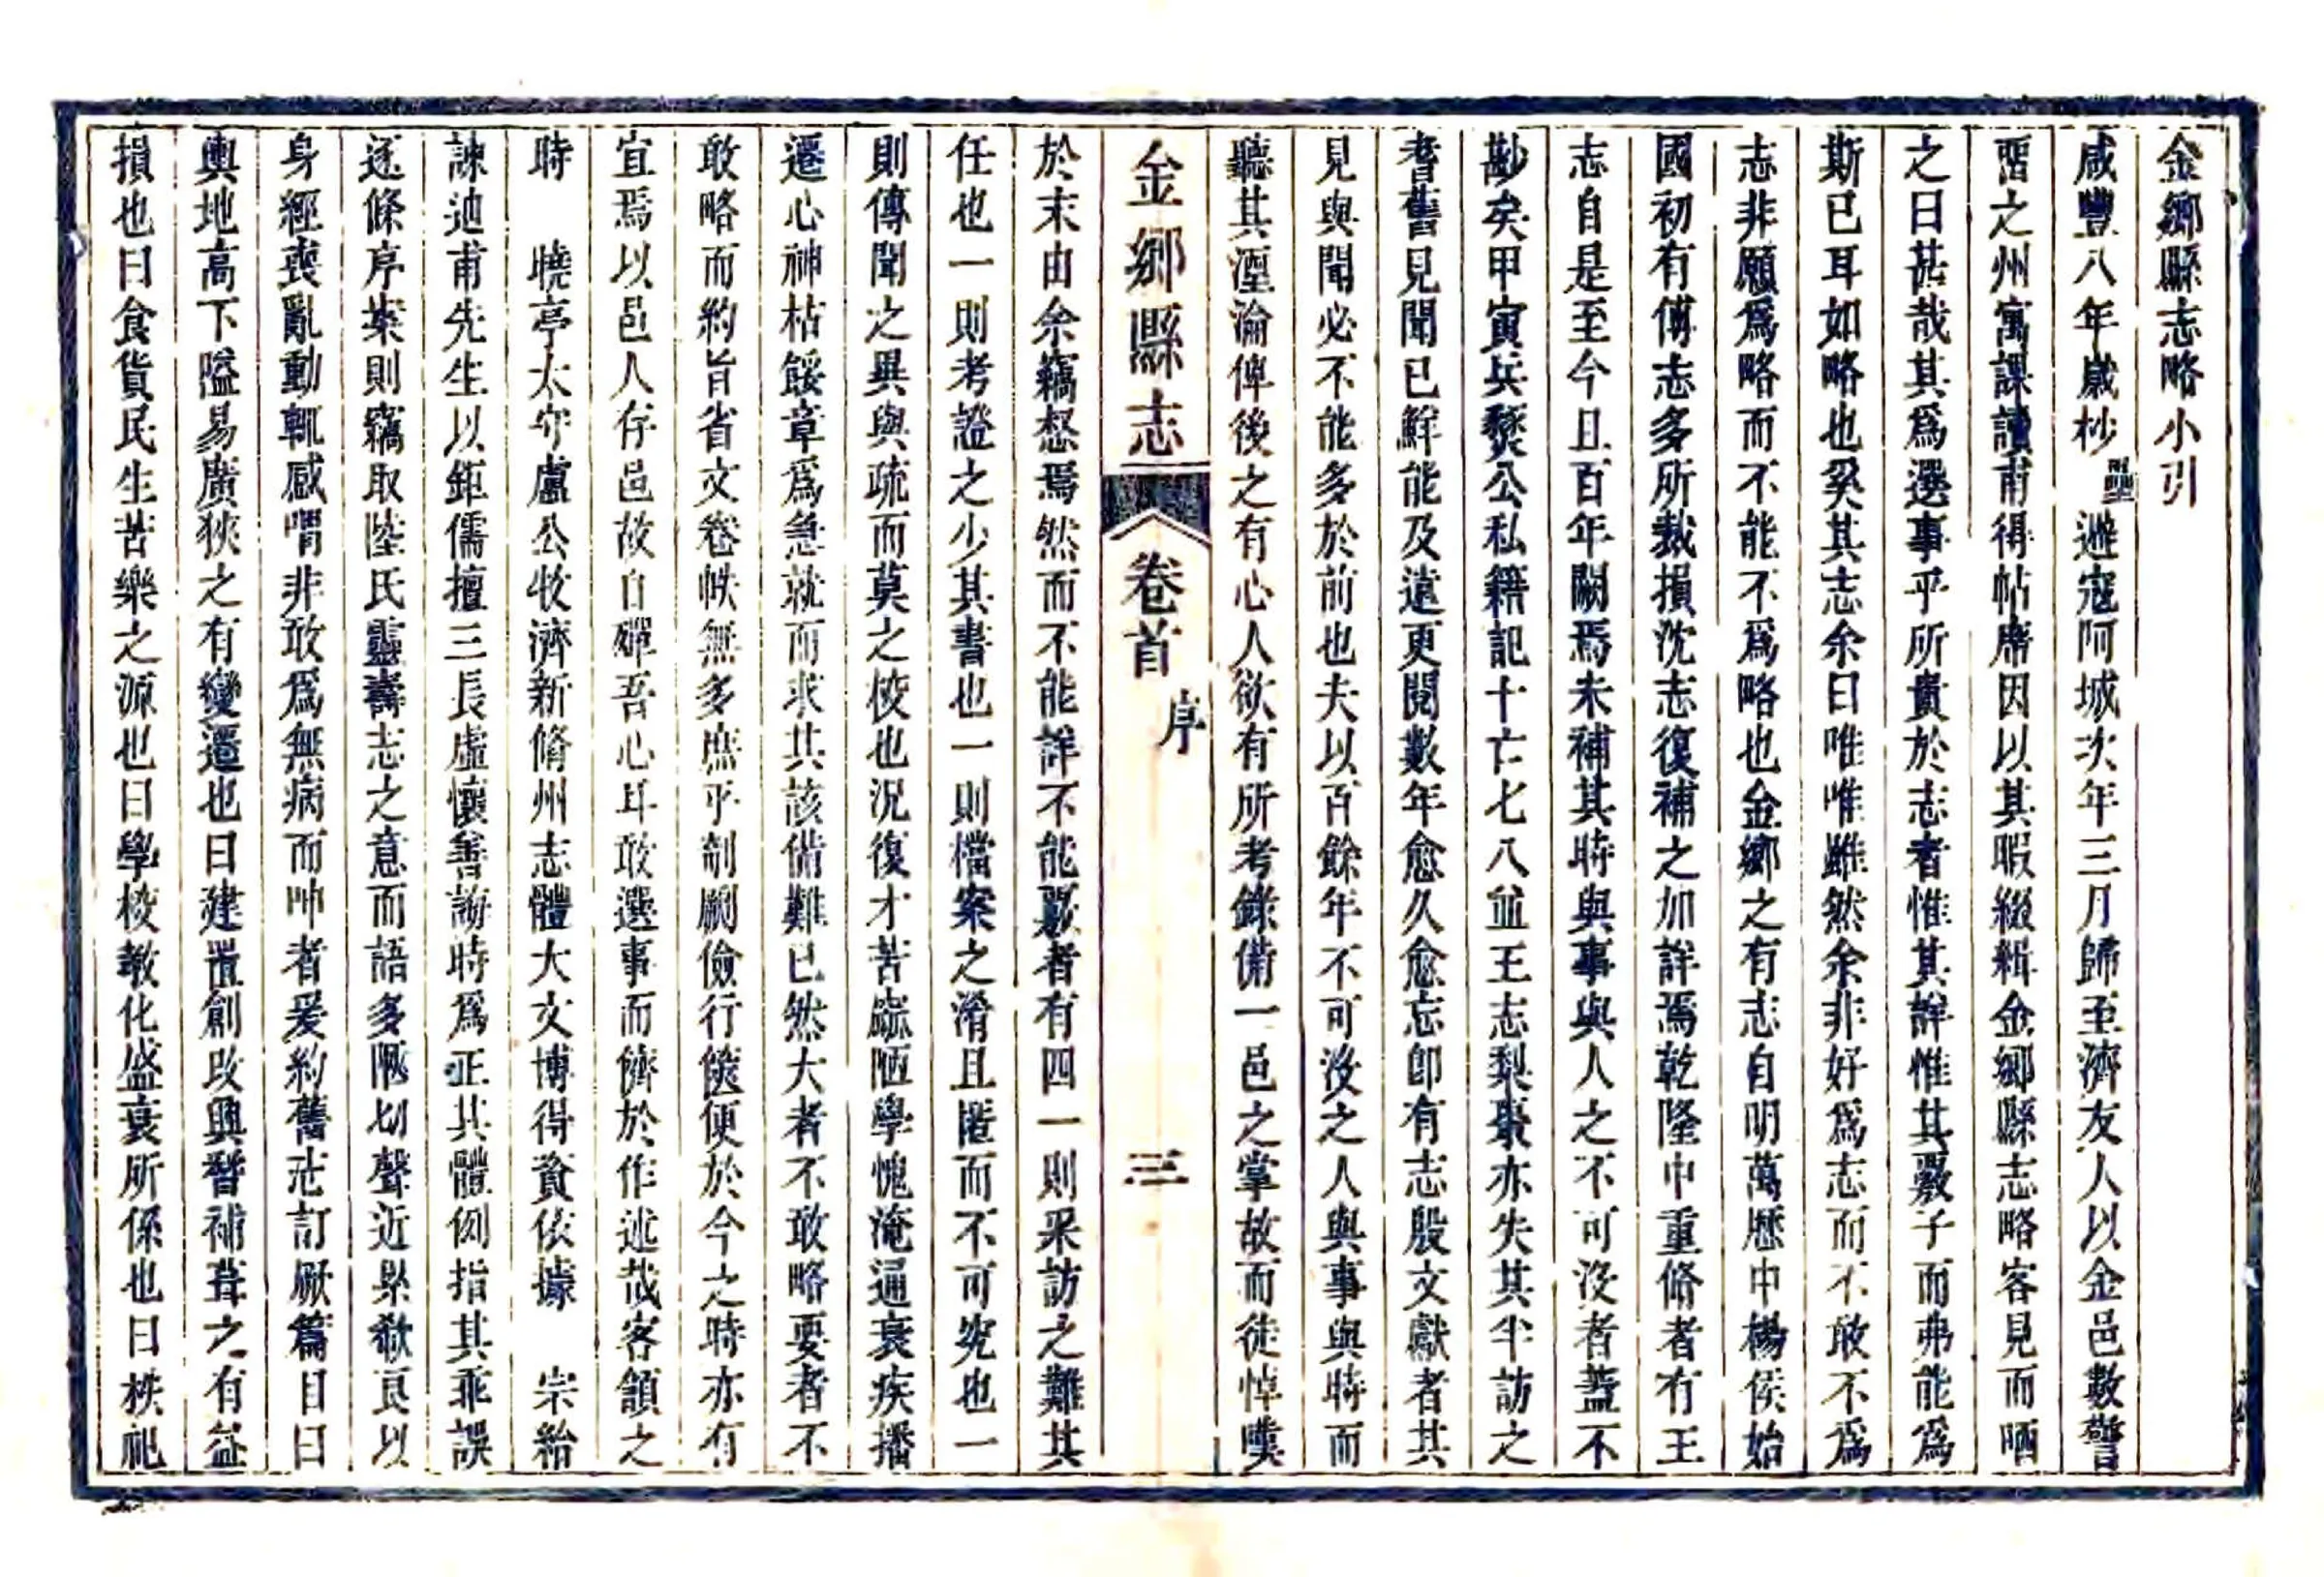 金鄉縣志略小引
咸豐八年歲杪壘避寇阿城次年三月歸至濟友人以金邑數警
畱之州寓課讀甫得帖席因以其暇綴輯金鄉縣志略客見而哂
之曰甚哉其爲選事乎所貴於志者惟其詳惟其覈子而弗能爲
斯已耳如略也奚其志余曰唯唯雖然余非好爲志而不敢不爲
志非願爲略而不能不爲略也金鄉之有志自明萬歷中楊侯始
國初有傅志多所裁損沈志復補之加詳焉乾隆中重脩者有王
志自是至今且百年闕焉未補其時與事與人之不可沒者葢不
尠矣甲寅兵燹公私籍記十亡七八並王志梨棗亦失其半訪之
耆舊見聞已鮮能及遠更閱數年愈久愈忘卽有志殷文獻者其
見與聞必不能多於前也夫以百餘年不可沒之人與事與時而
聽其湮淪俾後之有心人欲有所考錄備一邑之掌故而徒悼嘆
金鄉縣志 卷首 序 三
於末由余竊惄焉然而不能詳不能覈者有四一則采訪之難其
任也一則考證之少其書也一則檔案之淆且匿而不可究也一
則傳聞之異與疏而莫之校也況復才苦謭陋學愧淹通衰疾播
遷心神枯餒章爲急就而求其該備難已然大者不敢略要者不
敢略而約旨省文卷帙無多庶乎剞劂儉行篋便於今之時亦有
宜焉以邑人存邑故自殫吾心耳敢選事而儕於作述哉客頷之
時　曉亭太守盧公牧濟新脩州志體大文博得資依據　宗紿
諫迪甫先生以鉅儒擅三長虛懷善謭時爲正其體例指其乖誤
迻條序案則竊取陸氏靈壽志之意而語多陬切聲近累欷良以
身經喪亂動輒感喟非敢爲無病而呻者爰約舊志訂厥篇目曰
輿地高下隘易廣狹之有變遷也曰建置創改興替補葺之有益
損也曰食貨民生苦樂之源也曰學校敎化盛衰所係也曰秩祀